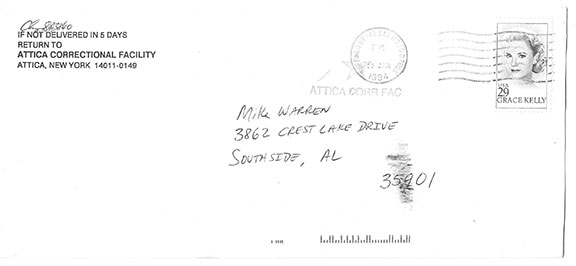 IF NOT DELIVERED IN 5 DAYS
RETURN TO
ATTICA CORRECTIONAL FACILITY
ATTICA, NEW YORK 14011-0149
1994
ATTICA CORR FAC
USA
29
GRACE KELLY
Mike WARREN
3862 CREST LAKE DRIVE
SOUTHSIDE, AL
35901